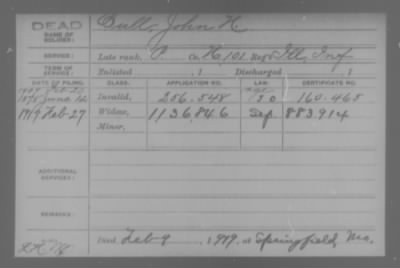 DEAD
NAME OF SOLDIER:
Bull, John H
SERVICE:
Late rank, P. Co. H, 101 Reg't Ill. Inf
TERM OF SERVICE:
Enlisted , 1 Discharged , 1
DATE OF FILING. CLASS. APPLICATION NO. LAW. CERTIFICATE NO.
1878 June 12 Invalid, 256.548 160.465
1919 Feb-27 Widow, 1136,846 Sep. 883914
Minor,
ADDITIONAL SERVICES:
REMARKS:
Died Feb-9 , 1919, at Springfield, Mo.